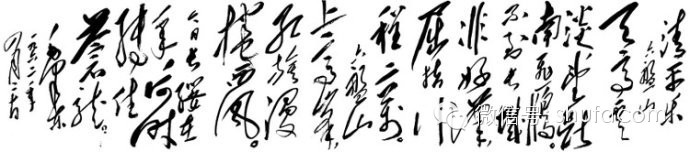 清平乐
六盘山
天高云
淡，望断
南飞雁。
不到长城
非好汉，
屈指行
程二万。
六盘山
上高峰，
红旗漫
捲西风。
今日长缨在
手，何时
缚住
苍龙？
毛泽东
一九六一年
九月
微信号: